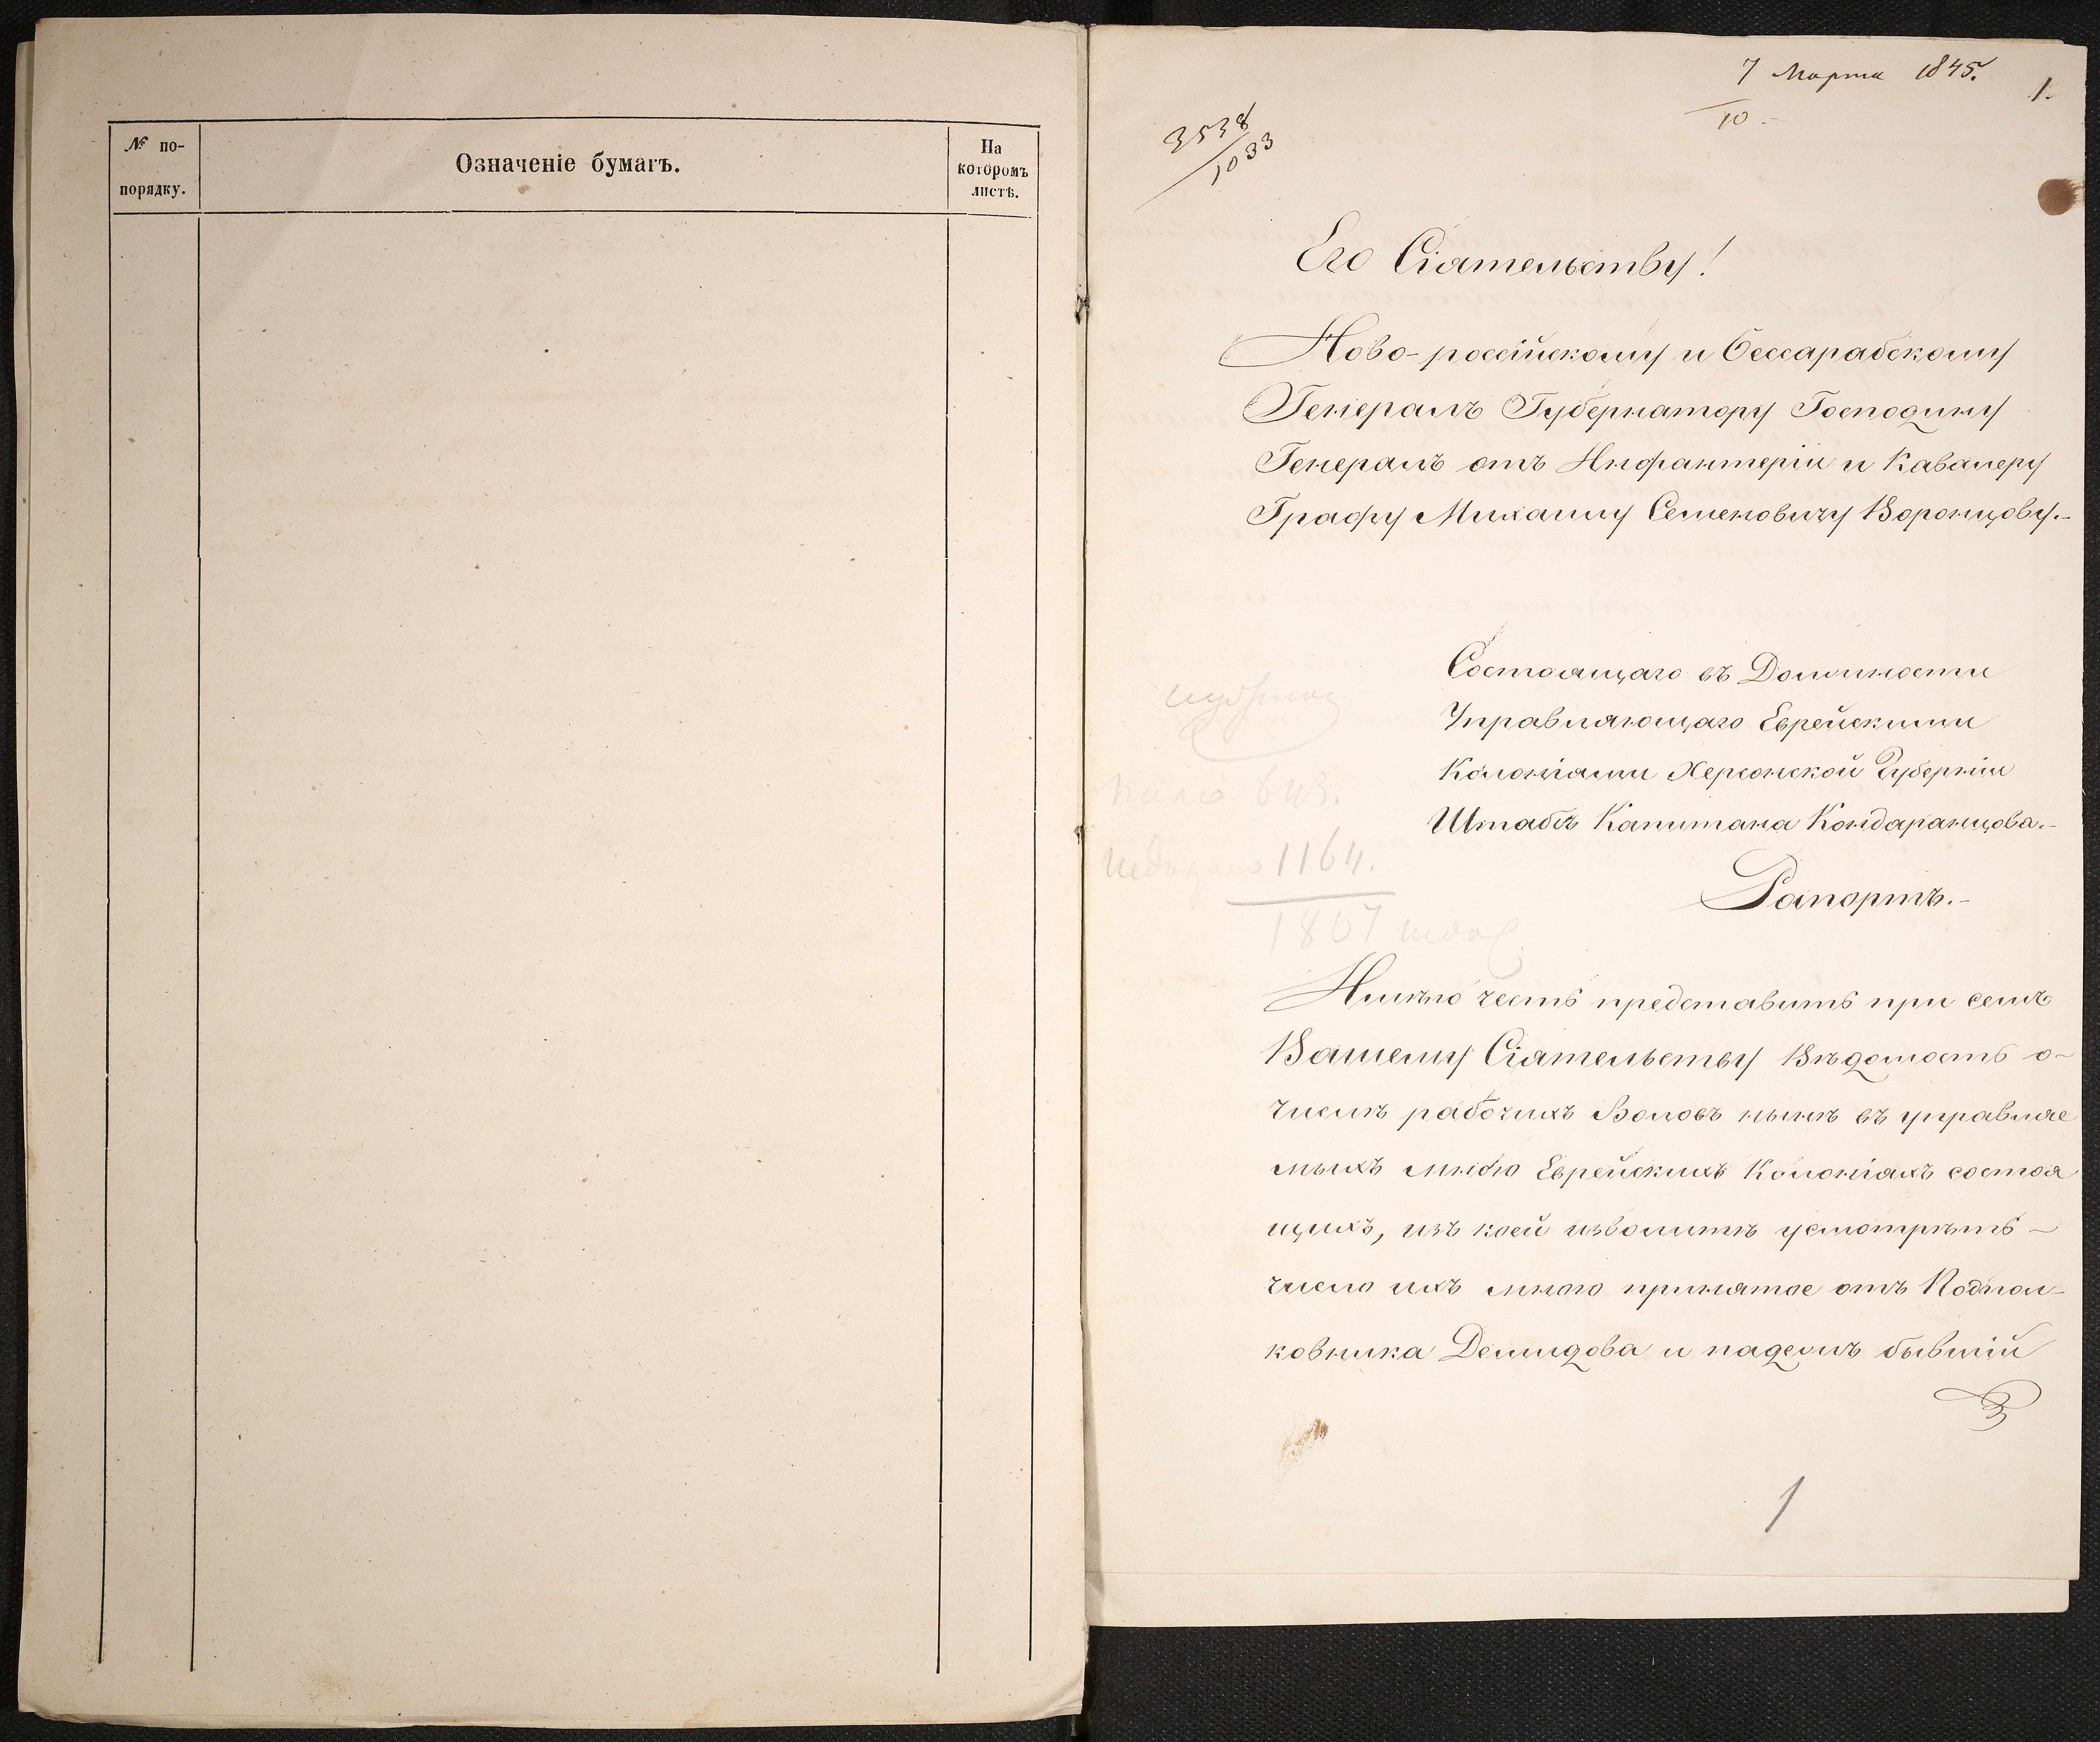 № по-
порядку.
Означеніе бумагъ.
На
которомъ
листѣ.
7 Марта 1845.
1.
10.-
3538
1033
Его Сіятельству!
Ново-россійскому и Бессарабскому
Генералъ Губернатору Господину
Генералъ отъ Инфантеріи и Кавалеру
Графу Михаилу Семеновичу Воронцову.-
Состоящаго въ Должности
Управляющаго Еврейскими
Колоніями Херсонской Губерніи
Штабсъ Капитана Кондаранцова.-
Рапортъ.-
1164.
1807
Имѣю честь представить при семъ
Вашему Сіятельству Вѣдомость о-
числѣ рабочихъ Воловъ нынѣ въ управляе
мыхъ мною Еврейскихъ Колоніяхъ состоя
щихъ, изъ коей изволитѣ усмотрѣть -
число ихъ мною принятое отъ Подпол-
ковника Демидова и падежъ бывшій
1